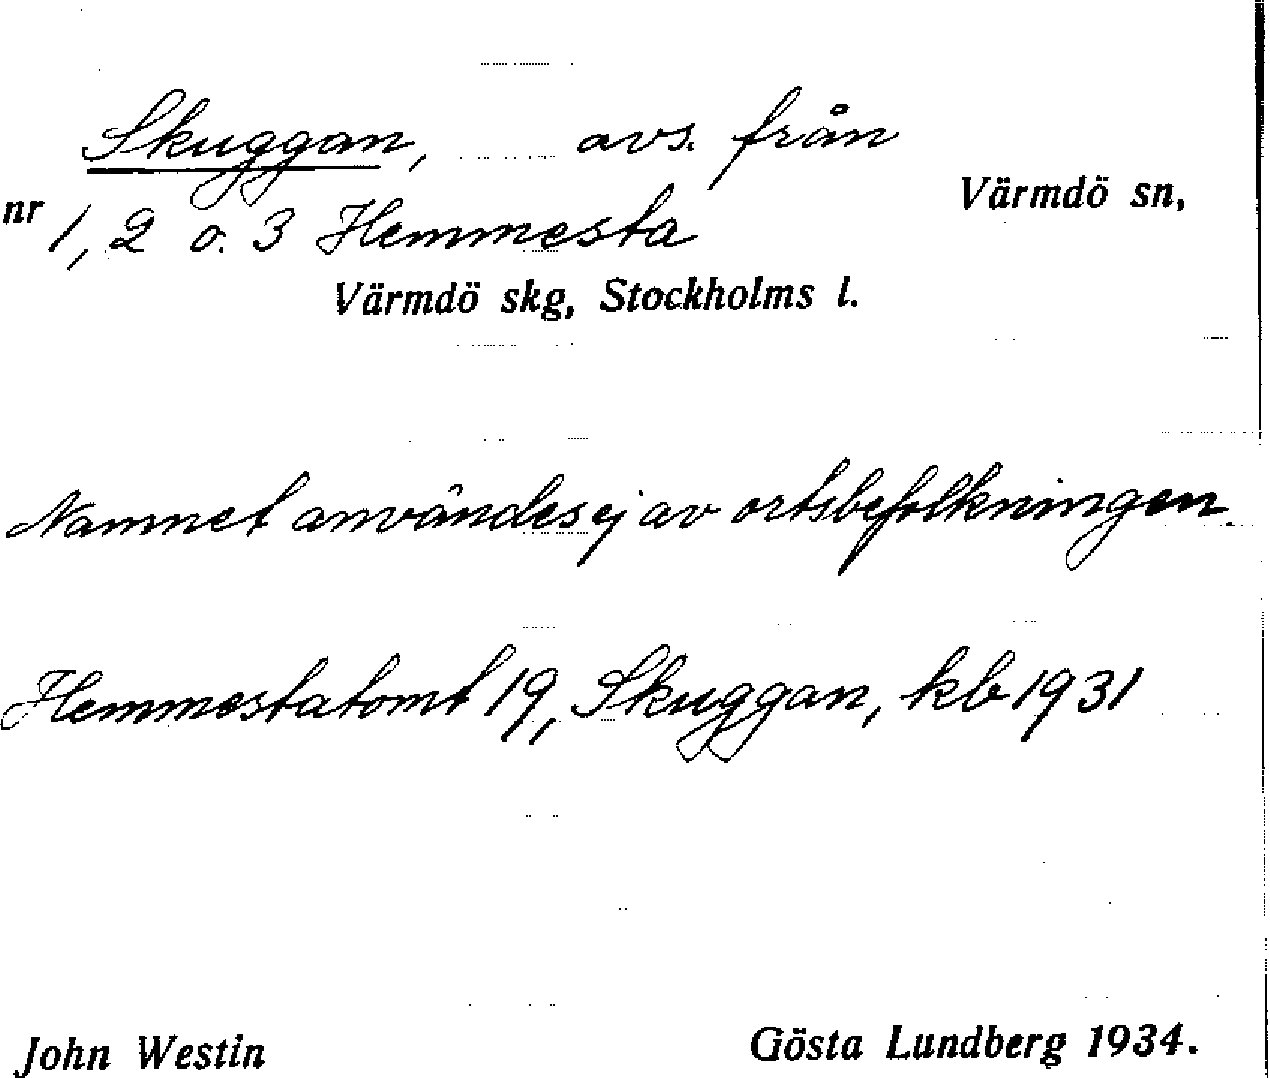 Skuggan, avs. från
Värmdö sn,
nr 1, 2 o. 3 Hemmesta
Värmdö skg, Stockholms l.
Namnet användes ej av ortsbefolkningen.
Hemmestatomt 19, Skuggan, kb 1931
John Westin
Gösta Lundberg 1934.